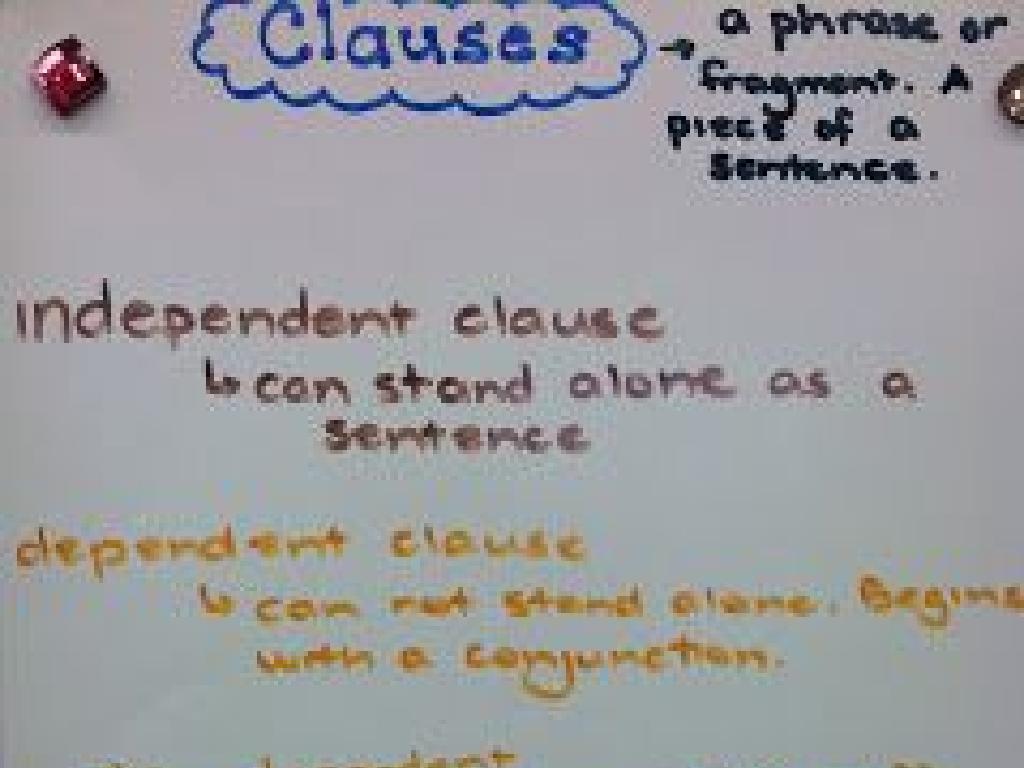 Clauses → a phrase or
fragment. A
piece of a
sentence.
independent clause
↳ can stand alone as a
sentence
dependent clause
↳ can not stand alone. Begins
with a conjunction.